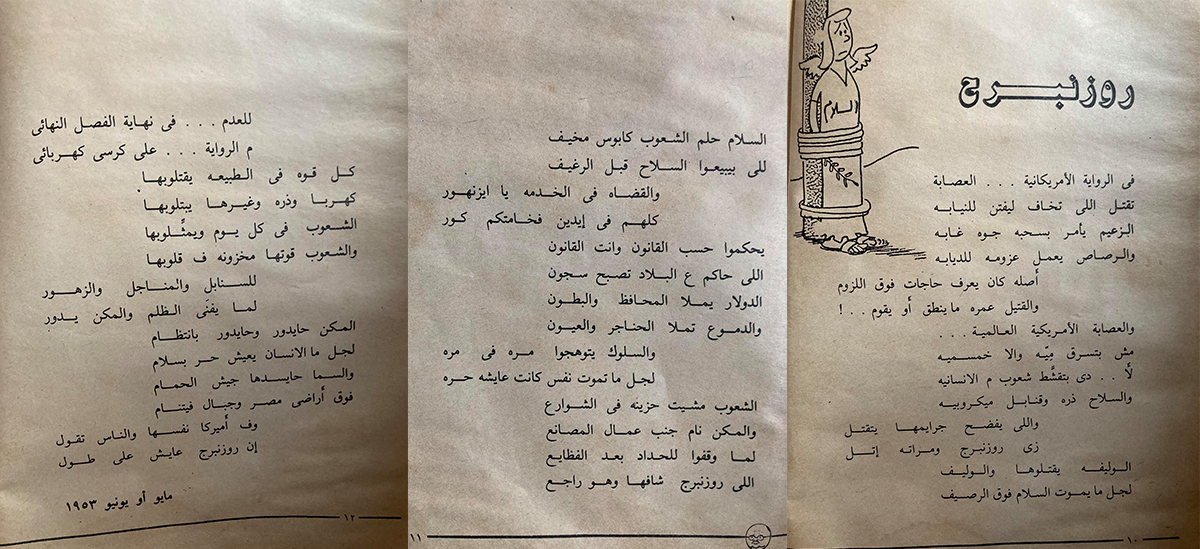 روزنبرج
السلام
فى الرواية الأمريكانية . . . العصابة
تقتل اللى تخاف ليفتن للنيابه
الزعيم يأمر بسحبه جوه غابه
والرصاص يعمل عزومه للديابه
أصله كان يعرف حاجات فوق اللزوم
والقتيل عمره ماينطق أو يقوم . . !
والعصابة الأمريكية العالمية . . .
مش بتسرق ميّه والا خمسميه
لأ . . دى بتقشَّط شعوب م الانسانيه
والسلاح ذره وقنابل ميكروبيه
واللى يفضح جرايمها يتقتل
زى روزنبرج ومراته إتل
الوليفه يقتلوها والوليف
لجل ما يموت السلام فوق الرصيف
١٠
السلام حلم الشعوب كابوس مخيف
للى بيبيعوا السلاح قبل الرغيف
والقضاه فى الخدمه يا ايزنهور
كلهم فى إيدين فخامتكم كور
يحكموا حسب القانون وانت القانون
اللى حاكم ع البلاد تصبح سجون
الدولار يملا المحافظ والبطون
والدموع تملا الحناجر والعيون
والسلوك يتوهجوا مره فى مره
لجل ما تموت نفس كانت عايشه حره
الشعوب مشيت حزينه فى الشوارع
والمكن نام جنب عمال المصانع
لما وقفوا للحداد بعد الفظايع
اللى روزنبرج شافها وهو راجع
١١
للعدم . . . فى نهاية الفصل النهائى
م الرواية . . . على كرسى كهربائى
كل قوه فى الطبيعه يقتلوبها
كهربا وذره وغيرها يبتلوبها
الشعوب فى كل يوم ويمثِّلوبها
والشعوب قوتها مخزونه ف قلوبها
للسنابل والمناجل والزهور
لما يفنَى الظلم والمكن يدور
المكن حايدور وحايدور بانتظام
لجل ما الانسان يعيش حر بسلام
والسما حايسدها جيش الحمام
فوق أراضى مصر وجبال فيتنام
وف أميركا نفسها والناس تقول
إن روزنبرج عايش على طول
مايو أو يونيو ١٩٥٣
١٢